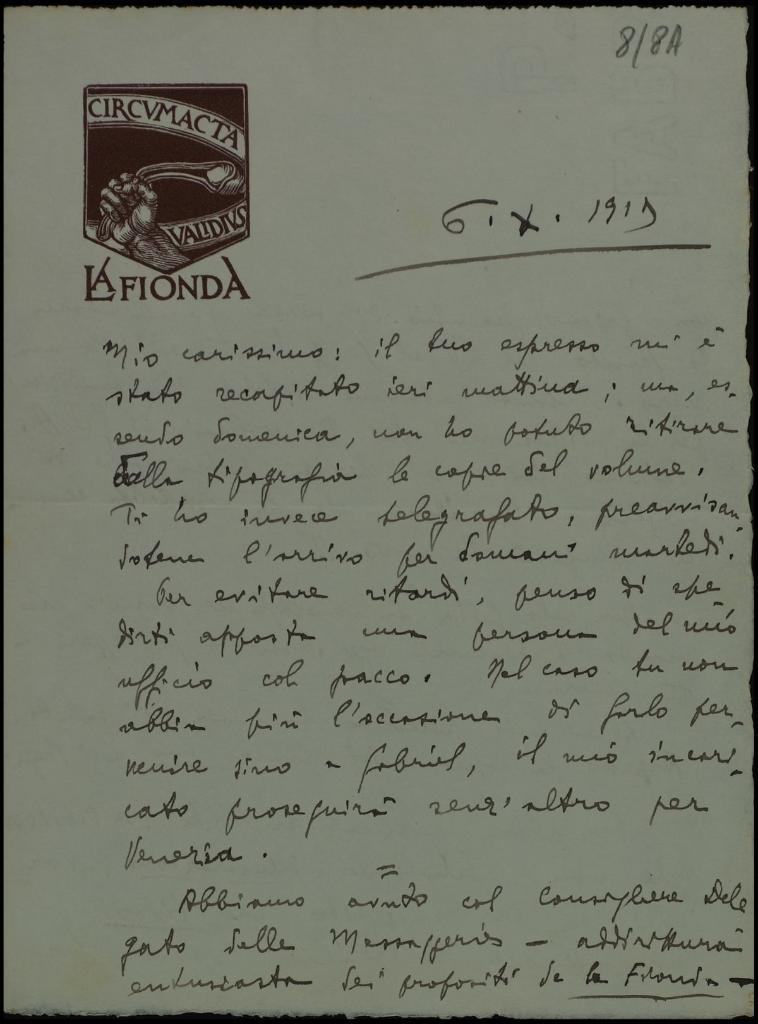 8/8A
CIRCVMACTA
VALIDIVS
LA FIONDA
6. X. 1919
Mio carissimo: il tuo espresso mi è
stato recapitato ieri mattina; ma, es-
sendo domenica, non ho potuto ritirare
dalla tipografia le copie del volume.
Ti ho invece telegrafato, preavvisan
dotene l'arrivo per domani martedì.
Per evitare ritardi, penso di spe
dirti apposta una persona del mio
ufficio col pacco. Nel caso tu non
abbia più l'occasione di farlo per-
venire sino a Gabriel, il mio incari-
cato proseguirà senz'altro per
Venezia.
=
Abbiamo avuto col Consigliere Dele
gato delle Messaggerie — addirittura
entusiasta dei propositi de la Fionda —